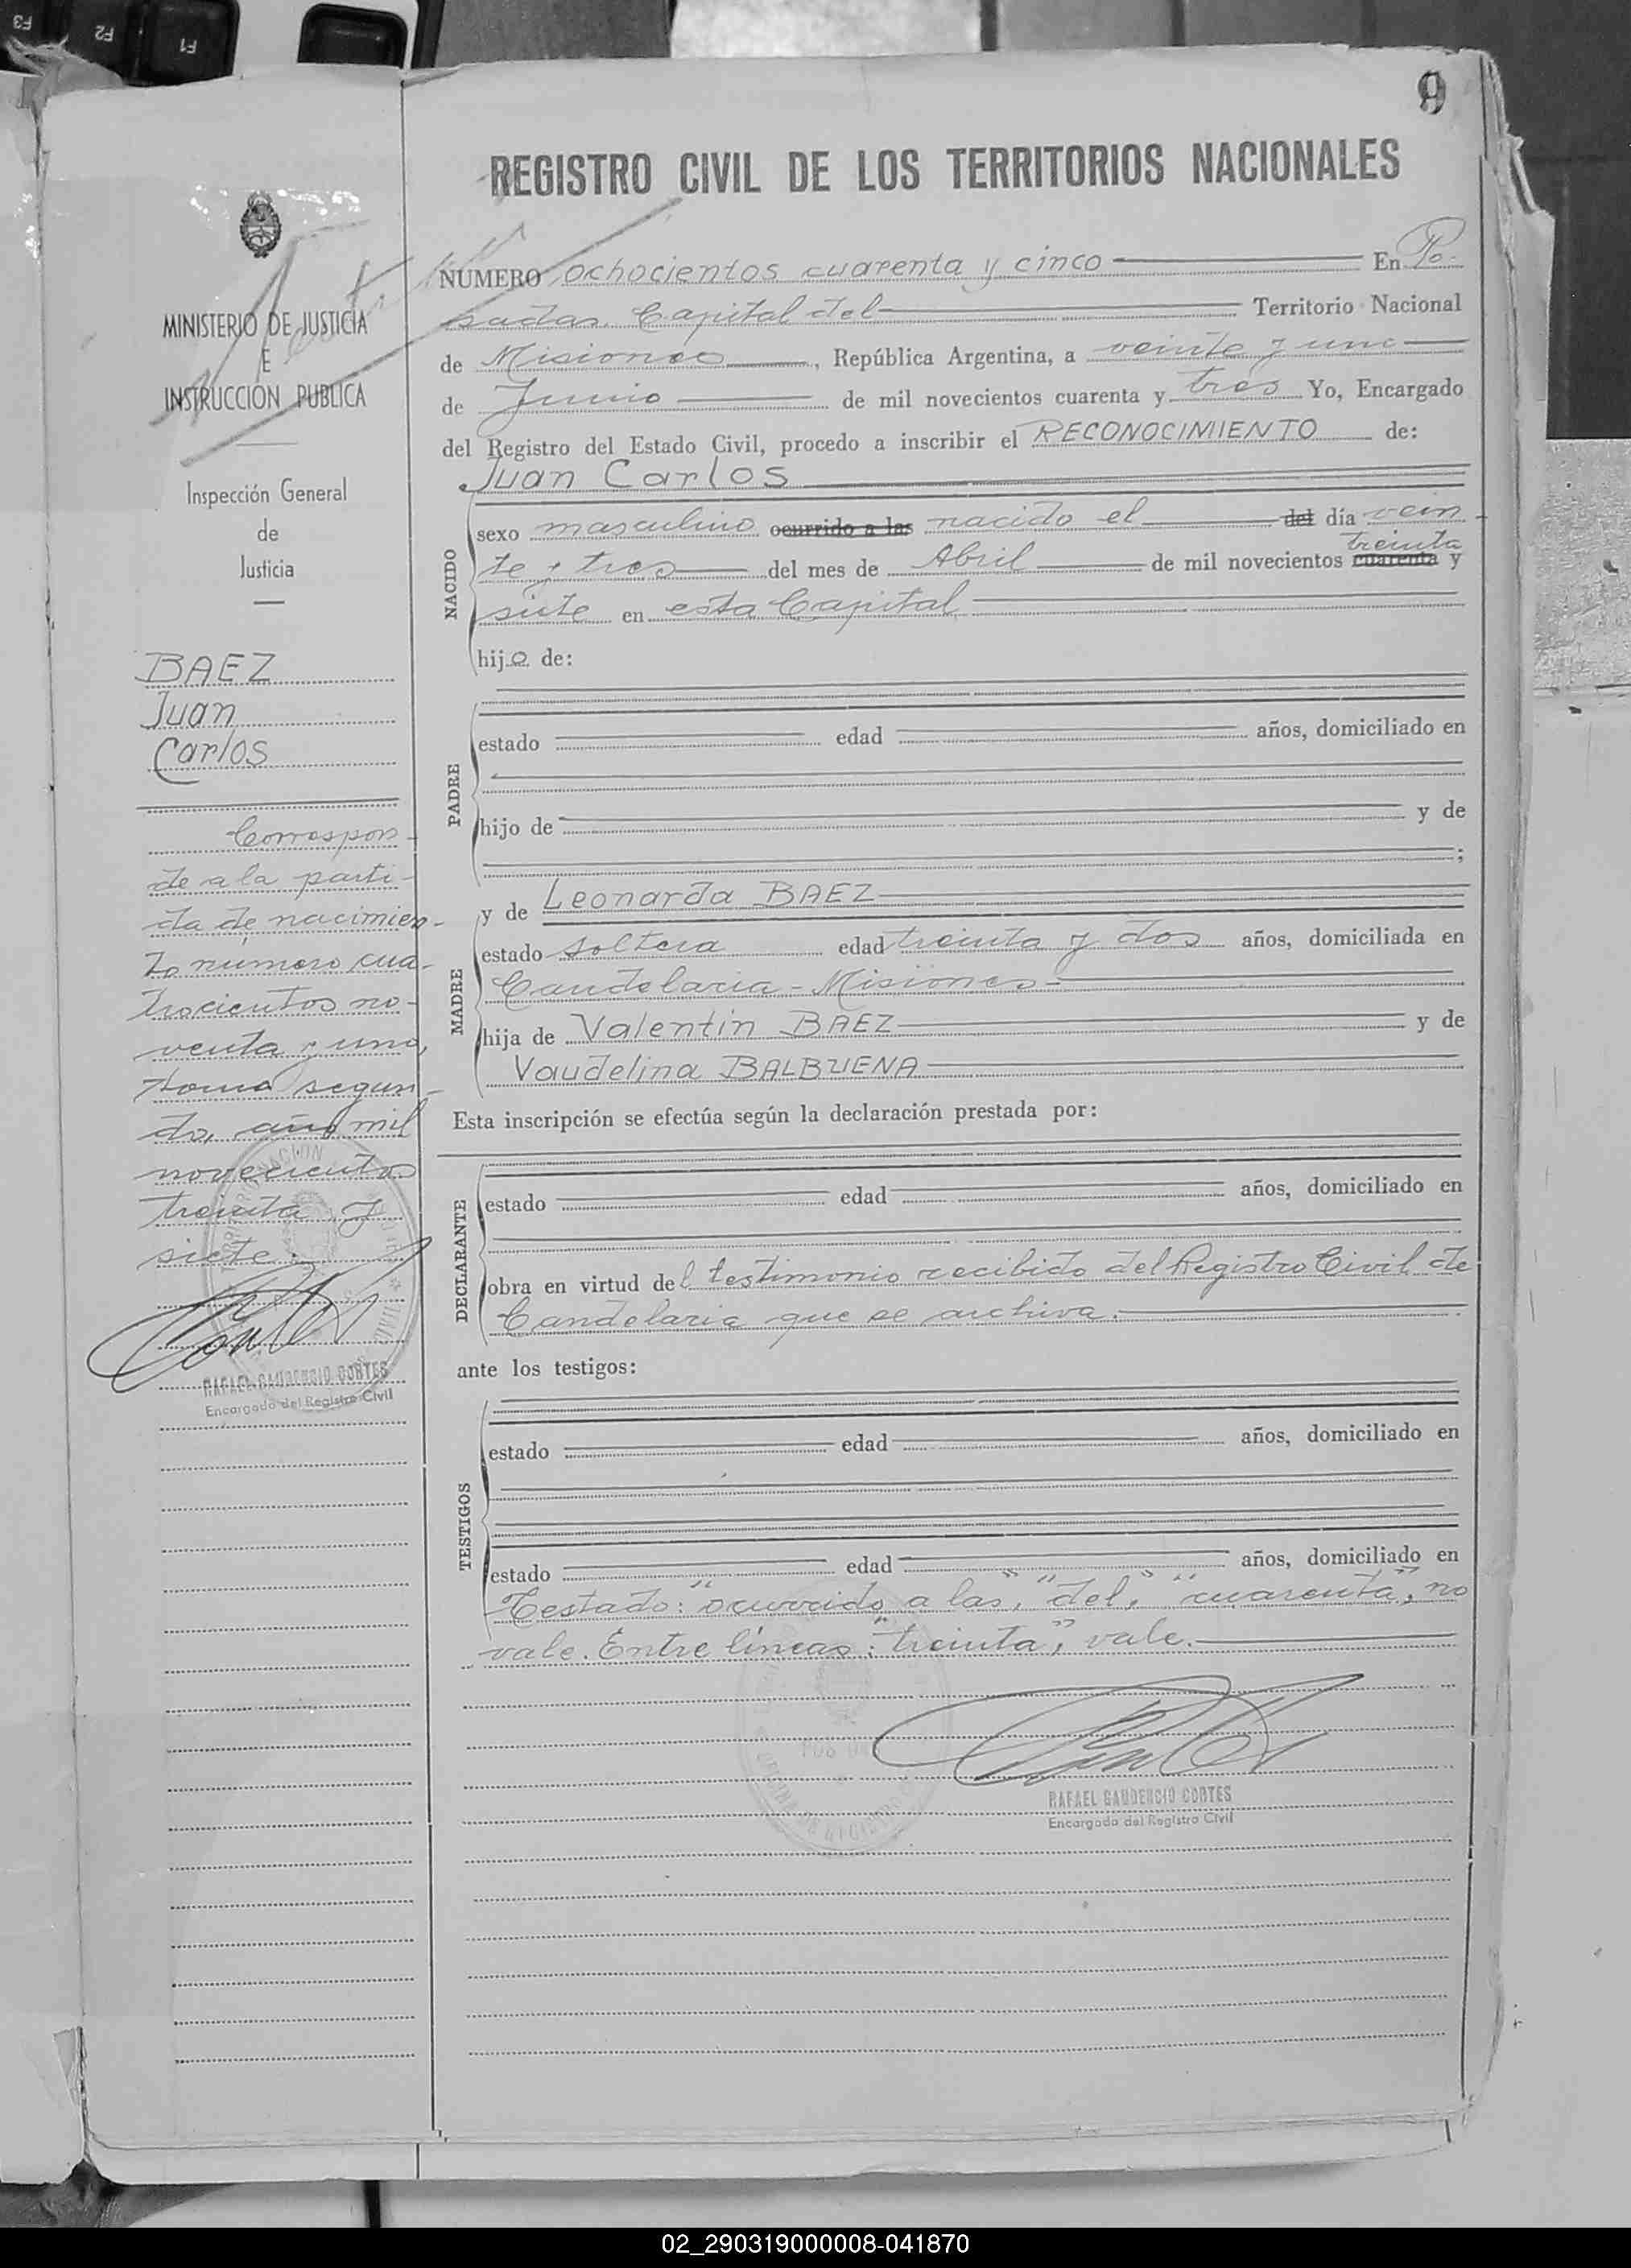 F3 F2 F1
9
REGISTRO CIVIL DE LOS TERRITORIOS NACIONALES
MINISTERIO DE JUSTICIA
E
INSTRUCCION PUBLICA
Inspección General
de
Justicia
BAEZ
Juan
Carlos
Correspon-
de a la parti-
da de nacimien-
to número cua-
trocientos no-
venta y uno,
tomo segun-
do, año mil
novecientos
treinta y
siete.
RAFAEL GAUDENCIO CORTES
Encargado del Registro Civil
NUMERO ochocientos cuarenta y cinco En Po-
sadas, Capital del Territorio Nacional
de Misiones, República Argentina, a veinte y uno
de Junio de mil novecientos cuarenta y tres Yo, Encargado
del Registro del Estado Civil, procedo a inscribir el RECONOCIMIENTO de:
Juan Carlos
NACIDO
sexo masculino ocurrido a las nacido el del día vein-
treinta
te y tres del mes de Abril de mil novecientos cuarenta y
siete en esta Capital
hijo de:
PADRE
estado edad años, domiciliado en
hijo de y de
;
MADRE
y de Leonarda BAEZ
estado soltera edad treinta y dos años, domiciliada en
Candelaria - Misiones -
hija de Valentin BAEZ y de
Vaudelina BALBUENA
Esta inscripción se efectúa según la declaración prestada por:
DECLARANTE
estado edad años, domiciliado en
obra en virtud del testimonio recibido del Registro Civil de
Candelaria que se archiva.
ante los testigos:
TESTIGOS
estado edad años, domiciliado en
estado edad años, domiciliado en
Testado: "ocurrido a las", "del", "cuarenta", no
vale. Entre líneas: "treinta", vale.
RAFAEL GAUDENCIO CORTES
Encargado del Registro Civil
02_290319000008-041870